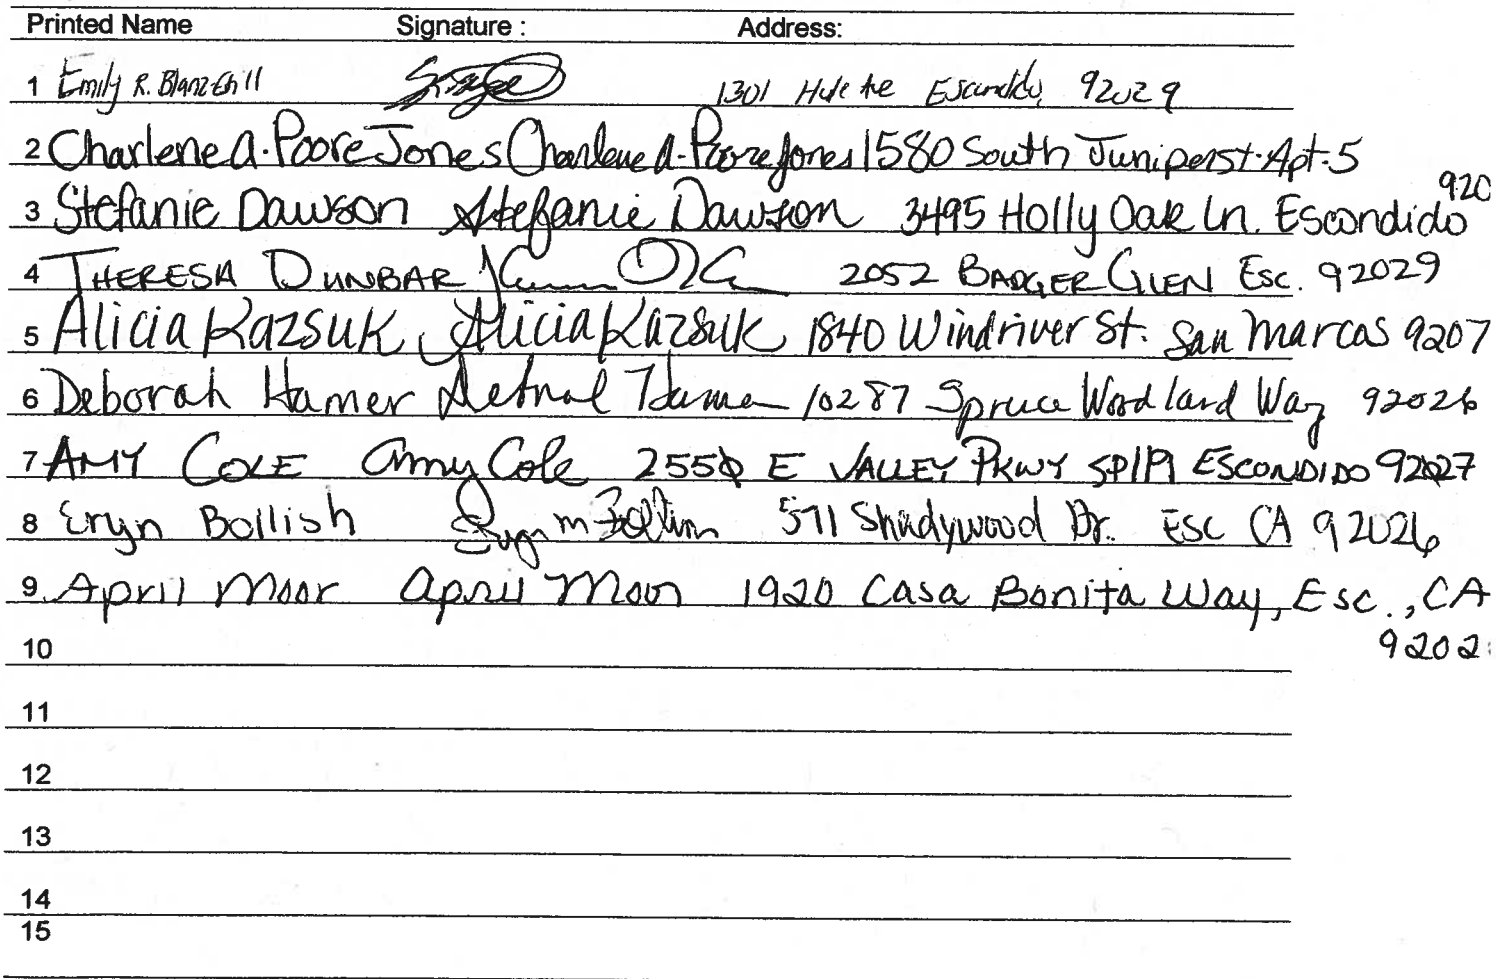 Printed Name Signature : Address:
1 Emily R. 1301 Ave Escondido, 92029
2 Charlene A. Poore Jones Charlene A. Poore Jones 1580 South Juniper st. Apt. 5
920
3 Stefanie Dawson Stefanie Dawson 3495 Holly Oak Ln. Escondido
4 THERESA DUNBAR 2052 BADGER GLEN ESC. 92029
5 Alicia Kazsuk Alicia Kazsuk 1840 Windriver St. San Marcos 9207
6 Deborah Hamer Deborah Hamer 10287 Spruce Woodland Way 92026
7 AMY COLE Amy Cole 2550 E VALLEY PKWY SP119 ESCONDIDO 92027
8 Eryn Bollish Eryn M Bollish 571 Shadywood Dr. ESC CA 92026
9 April Moor April Moor 1920 Casa Bonita Way, Esc., CA
9202
10
11
12
13
14
15